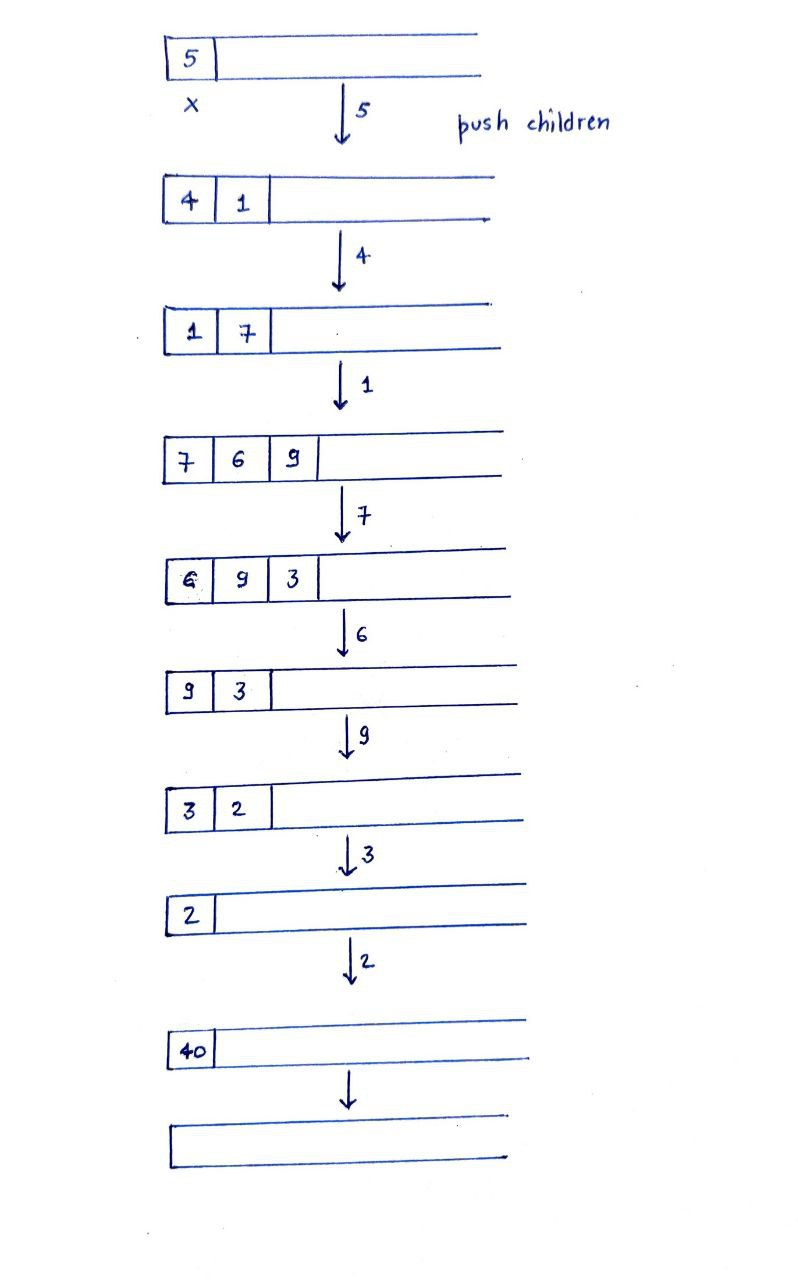 5
x
5
push children
4 1
4
1 7
1
7 6 9
7
6 9 3
6
9 3
9
3 2
3
2
2
40